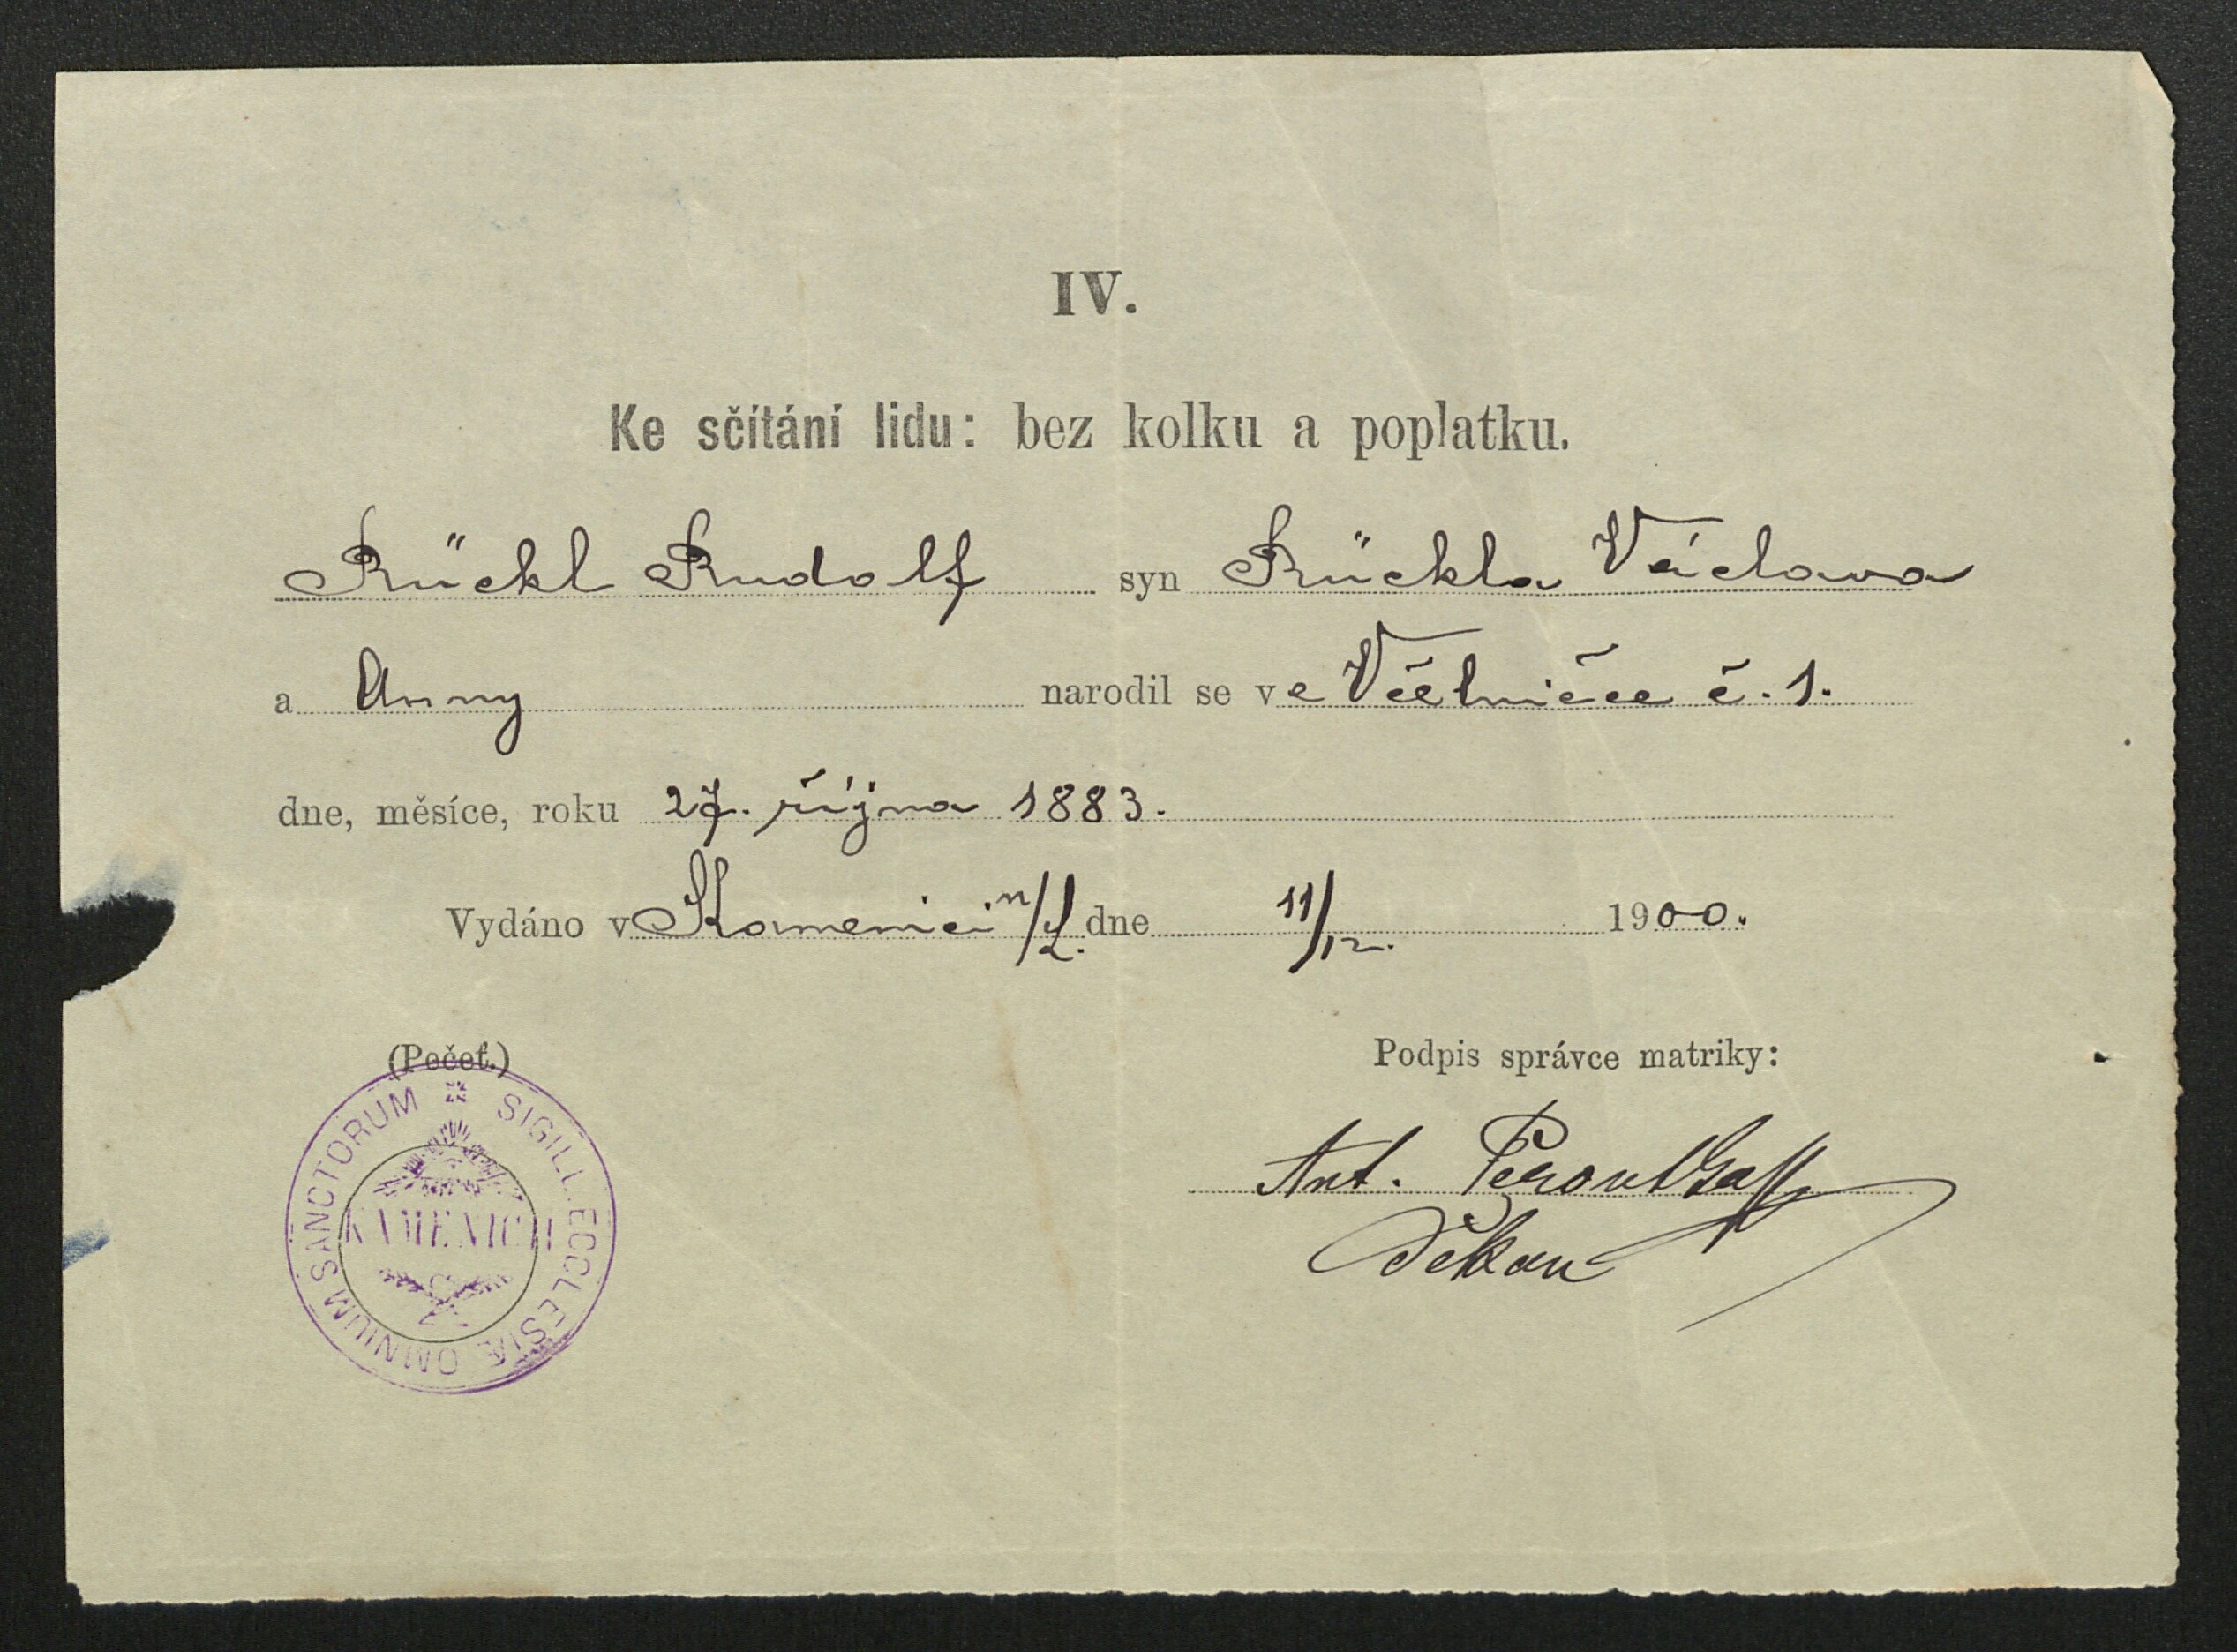 IV.
Ke sčítání lidu: bez kolku a poplatku.
Rückl Rudolf syn Rückla Václava
a Anny narodil se ve Včelničce č. 1.
dne, měsíce, roku 27. října 1883.
Vydáno v Kamenici n/L. dne 11/12. 1900.
(Pečeť.)
Podpis správce matriky:
SIGILL. ECCLESIÆ OMNIUM SANCTORUM
KAMENICII
Ant. Peroutka
děkan